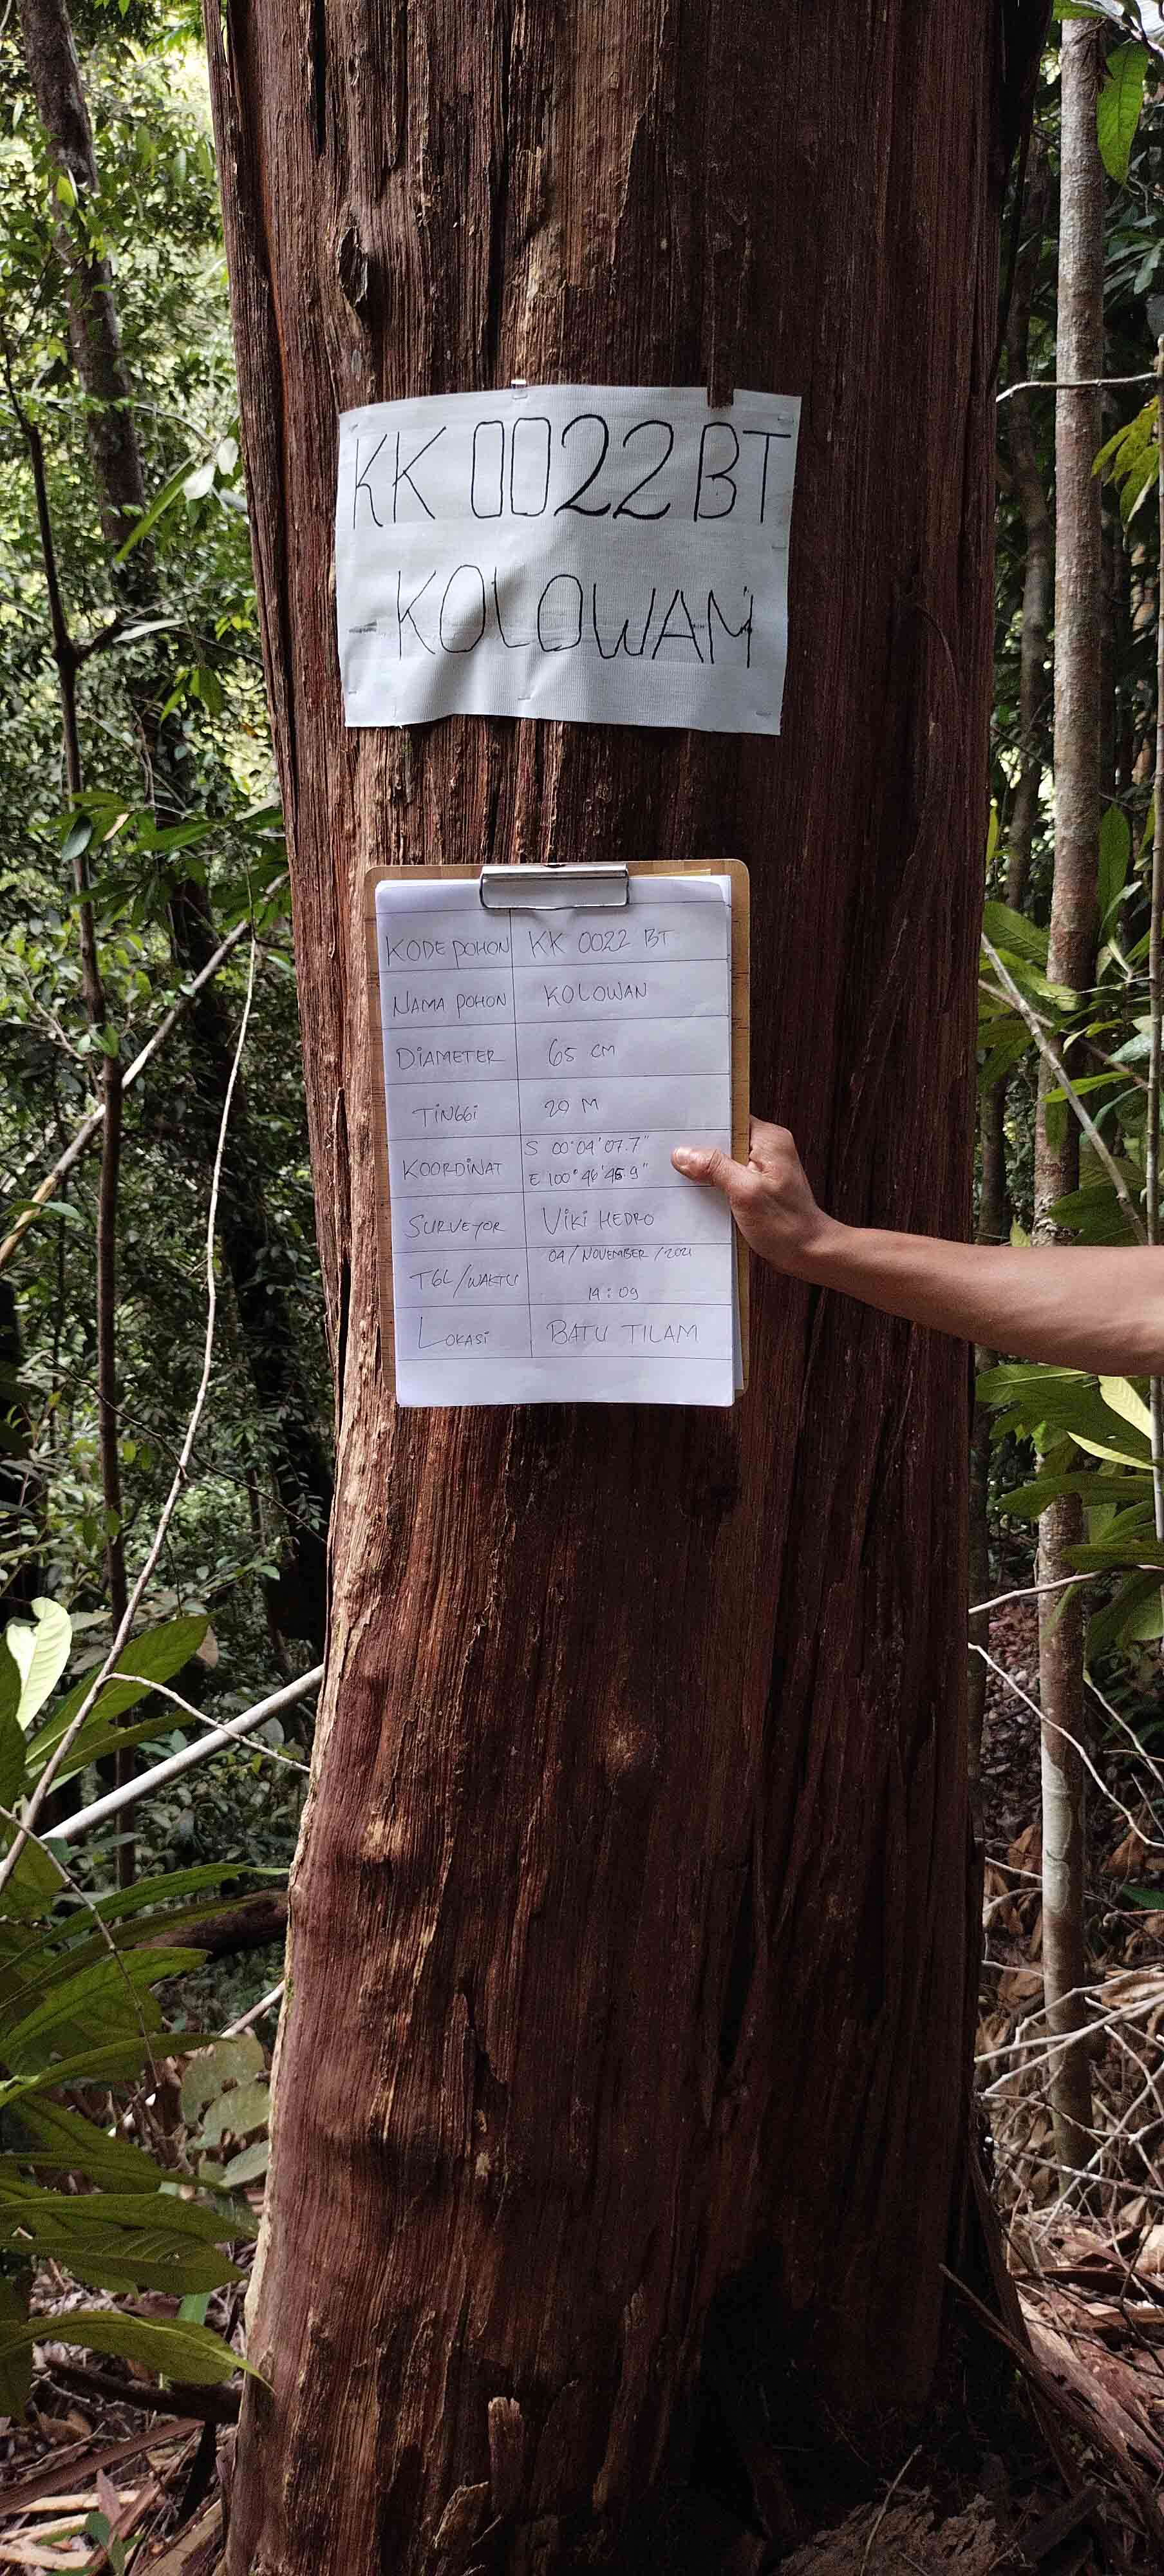 KK 0022 BT
KOLOWAM
KODE POHON KK 0022 BT
NAMA POHON KOLOWAN
DIAMETER 65 CM
TINGGI 29 M
KOORDINAT S 00°04'07.7"
E 100°46'45.9"
SURVEYOR VIKI HEDRO
TGL/WAKTU 04/NOVEMBER/2021
14:09
LOKASI BATU TILAM